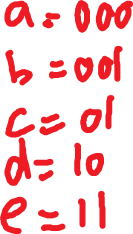 a = 000
b = 001
c = 01
d = 10
e = 11